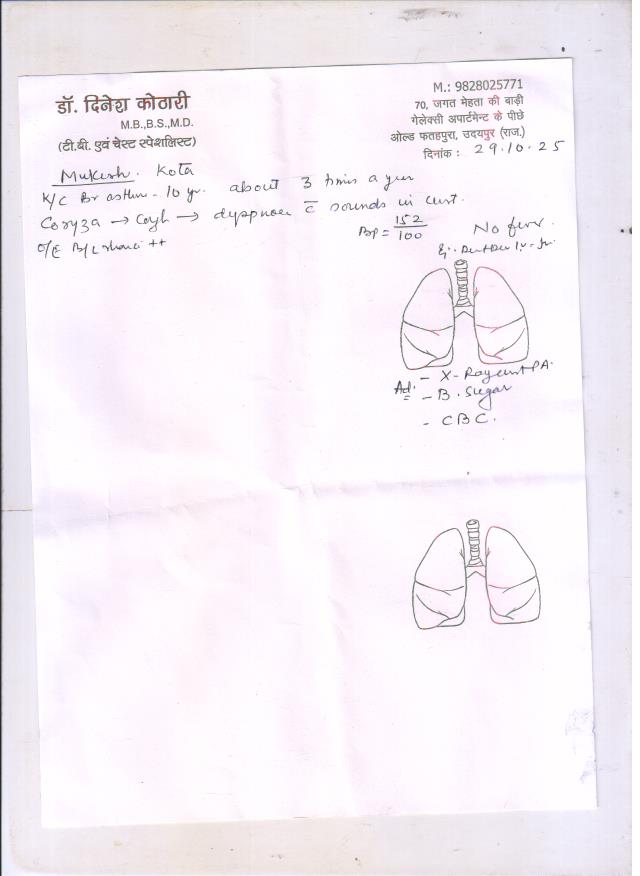 डॉ. दिनेश कोठारी
M.B.,B.S.,M.D.
(टी.बी. एवं चेस्ट स्पेशलिस्ट)
M.: 9828025771
70, जगत मेहता की बाड़ी
गेलेक्सी अपार्टमेन्ट के पीछे
ओल्ड फतहपुरा, उदयपुर (राज.)
दिनांक : 29.10.25
Mukesh. Kota
K/C Br asthm - 10 yr. about 3 times a year
Coryza → Cough → dyspnoea c̅ sounds in chest.
O/E B/L rhonci ++
BP = 152/100
No fever
Ad. - X-Ray chest PA.
- B. Sugar
- CBC.